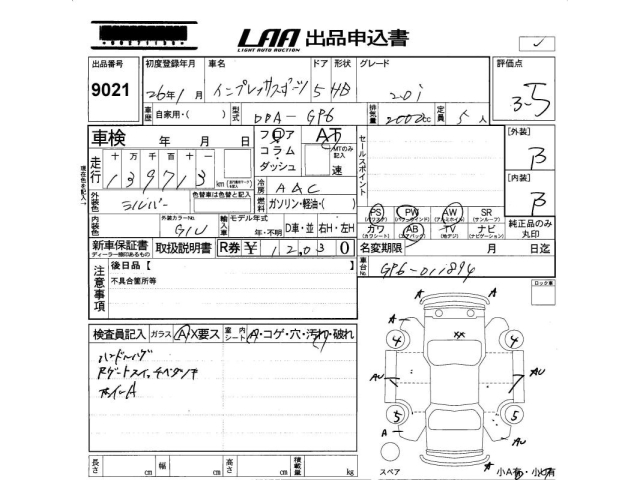 LAA 出品申込書
LIGHT AUTO AUCTION
出品番号 9021
初度登録年月 26年1月
車名 インプレッサスポーツ
ドア 形状 5 HB
グレード 2.0i
評価点 3.5
車歴 自家用・( )
型式 DBA-GP6
排気量 2000cc
定員 5人
車検 年 月 日
フロア コラム ダッシュ
AT
MTのみ記入
速
セールスポイント
[外装] B
[内装] B
走行 十 万 千 百 十 一
139713 km
現在色を記入
外装色 シルバー
色替車は色替と記入
冷房 AAC
燃料 ガソリン・軽油・( )
PS PW AW SR
(パワステ) (パワーウインドウ) (アルミホイル) (サンルーフ)
カワ AB TV ナビ
(カワシート) (エアバック) (地デジ) (ナビゲーション)
純正品のみ丸印
内装色
外装カラーNo. G1U
輸入車 モデル年式 年・不明
D車・並
右H・左H
新車保証書
ディーラー捺印あるもの
取扱説明書
R券 ¥ 12030
名変期限 月 日迄
車台No. GP6-011894
注意事項
後日品【
不具合箇所等
ロック車
検査員記入 ガラス A・X要ス
室内シート A・コゲ・穴・汚れ・破れ
ハンドルハゲ
ホイールA
A A
A
XX
4 4
AU AU
5 5
A AU
A
長さ cm 幅 cm 高さ cm 積載量 kg
スペア
小A有・小凹有